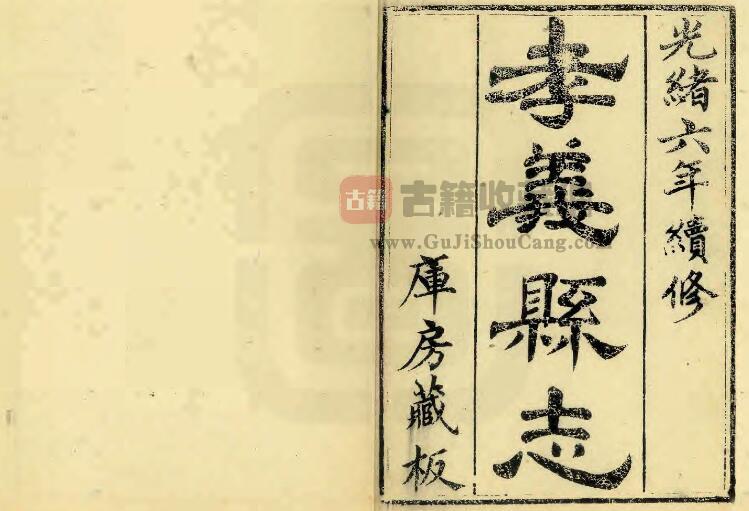 光緒六年續修
孝義縣志
庫房藏板
古籍
古籍收
www.GuJiShouCang.com